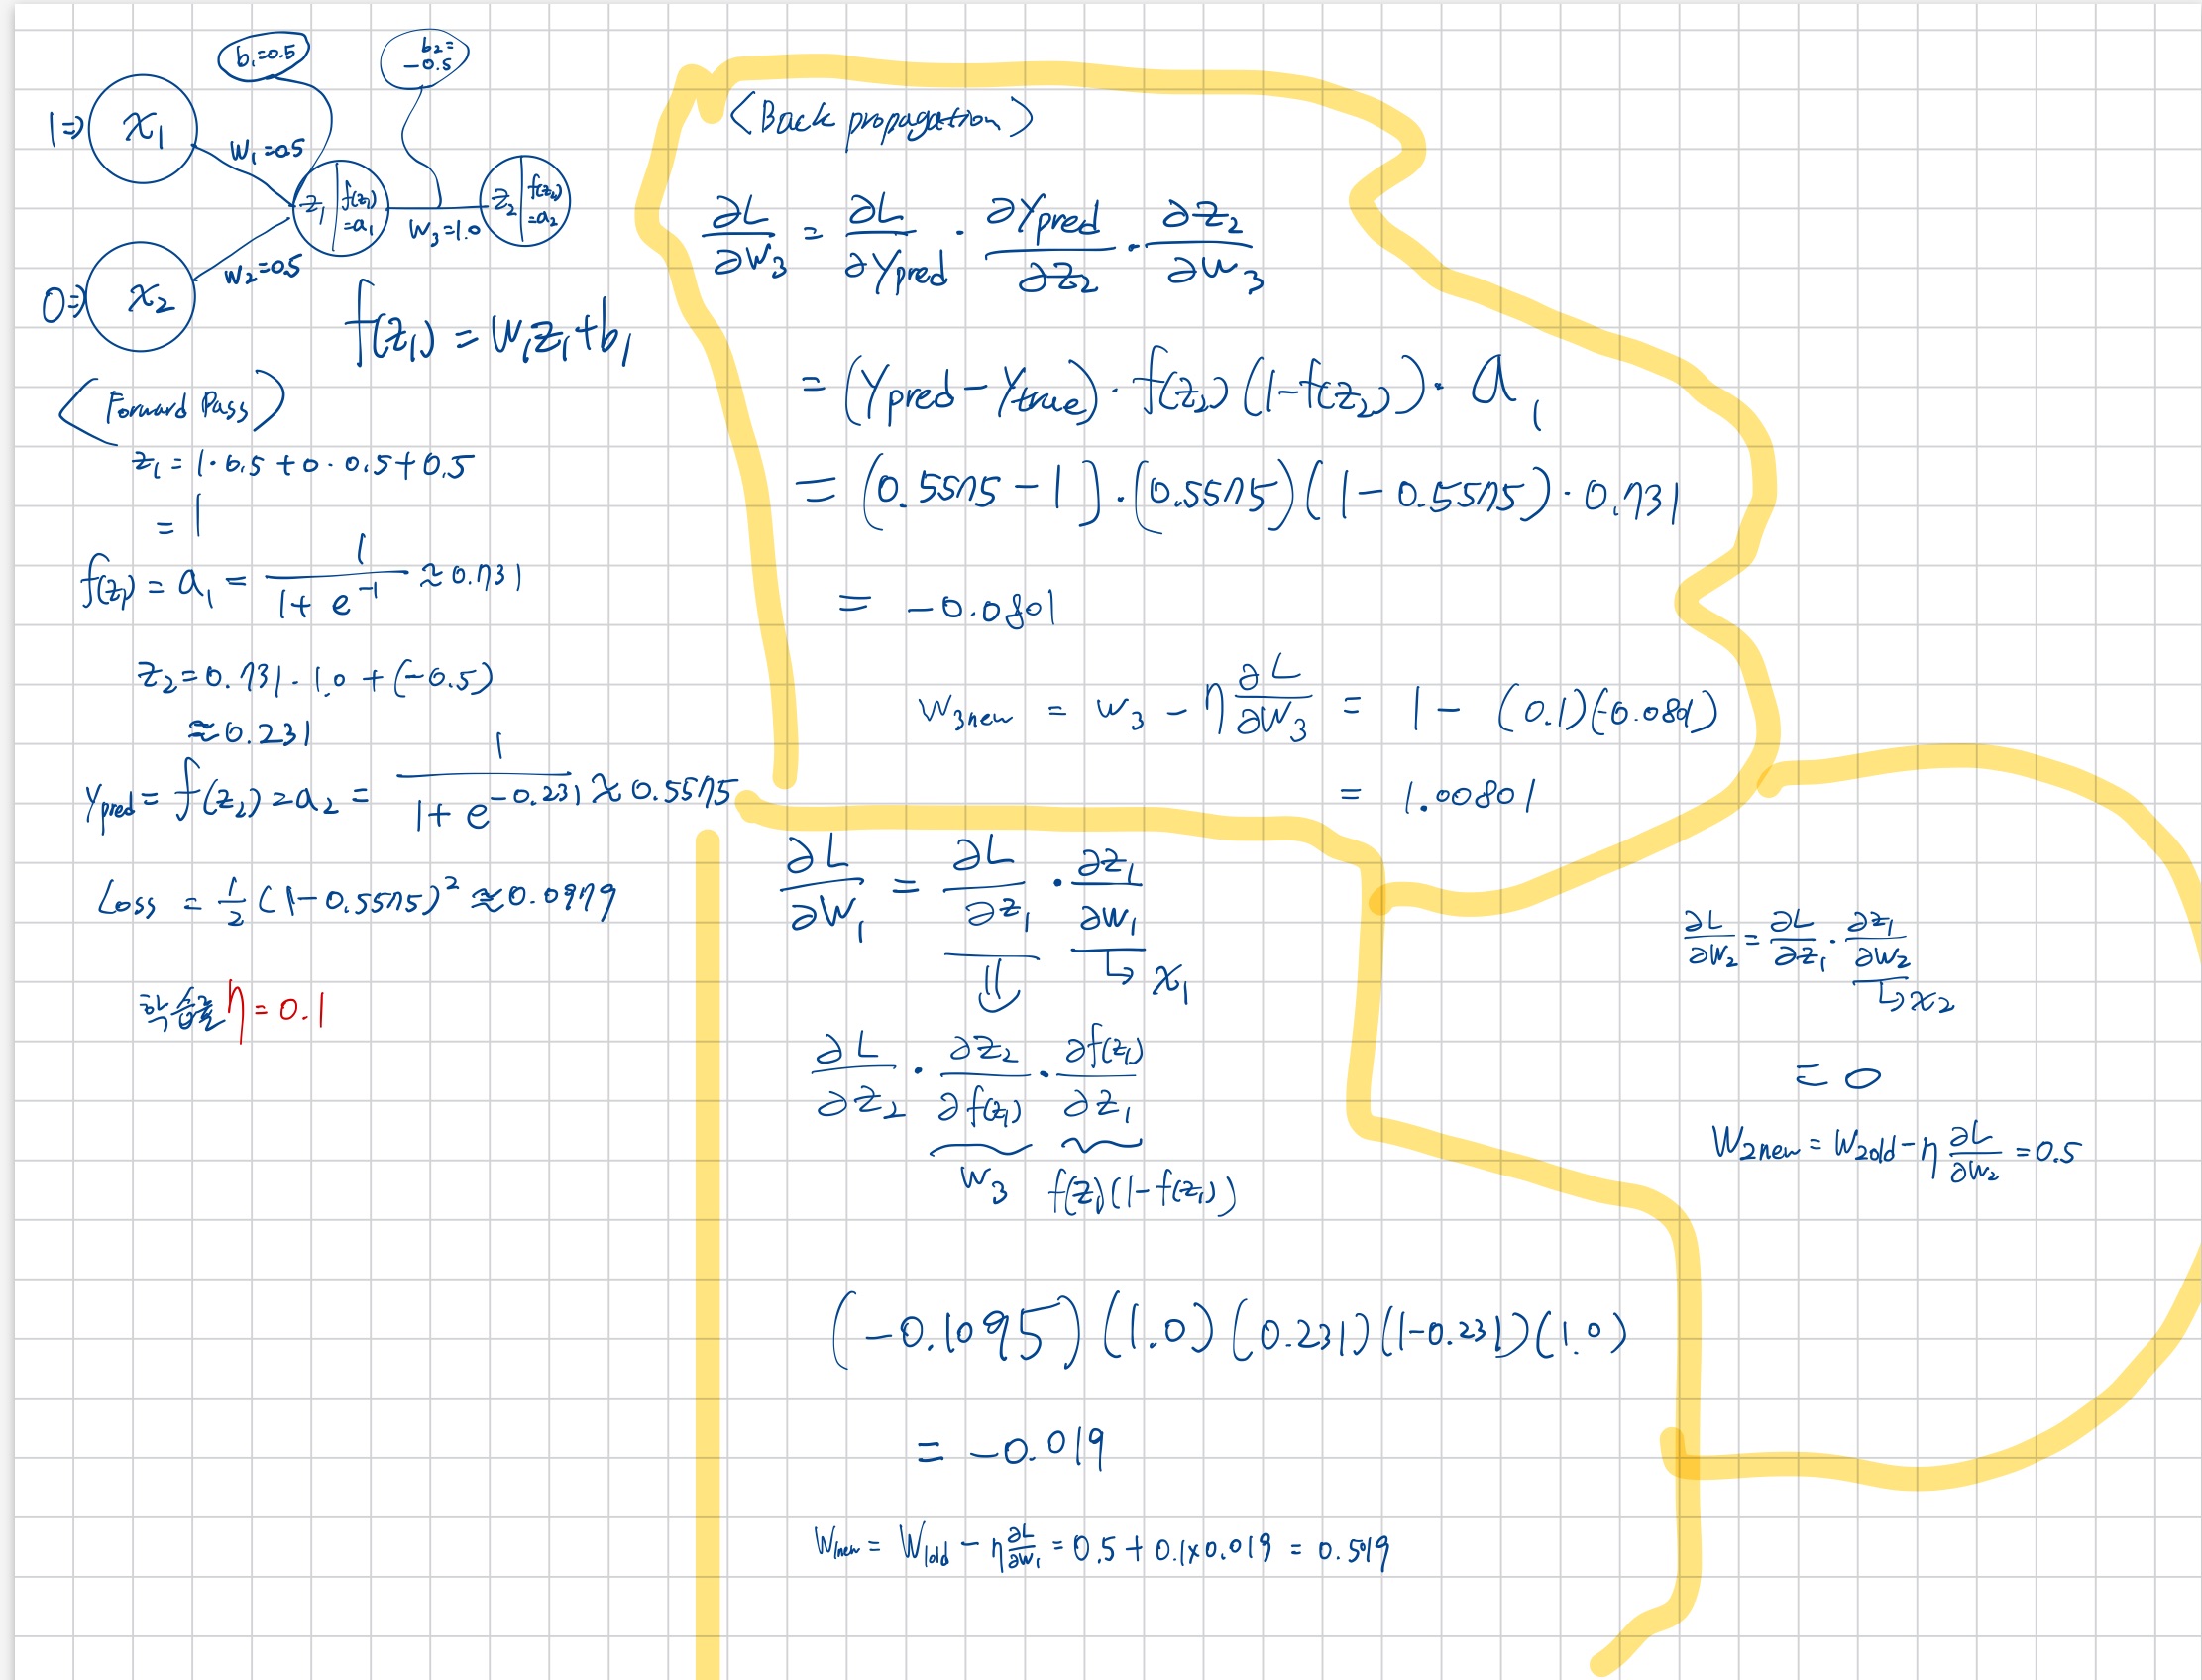 b₁=0.5
b₂=
-0.5
1⇒ x₁
w₁=0.5
z₁ | f(z₁)
=a₁
w₃=1.0
z₂ | f(z₂)
=a₂
w₂=0.5
0⇒ x₂
f(z₁) = w₁z₁+b₁
<Forward Pass>
z₁ = 1·0.5+0·0.5+0.5
= 1
f(z₁) = a₁ = 1/(1+e^-1) ≈ 0.731
z₂ = 0.731·1.0+(-0.5)
≈0.231
Ypred = f(z₂) = a₂ = 1/(1+e^-0.231) ≈ 0.5575
Loss = 1/2 (1-0.5575)² ≈ 0.0979
학습률 η = 0.1
<Back propagation>
∂L/∂w₃ = ∂L/∂Ypred · ∂Ypred/∂z₂ · ∂z₂/∂w₃
= (Ypred-Ytrue)·f(z₂)(1-f(z₂))·a₁
= (0.5575-1)·(0.5575)(1-0.5575)·0.731
= -0.0801
w₃new = w₃ - η ∂L/∂w₃ = 1 - (0.1)(-0.0801)
= 1.00801
∂L/∂w₁ = ∂L/∂z₁ · ∂z₁/∂w₁
↳ x₁
∂L/∂z₂ · ∂z₂/∂f(z₁) · ∂f(z₁)/∂z₁
w₃ f(z₁)(1-f(z₁))
(-0.1095)(1.0)(0.231)(1-0.231)(1.0)
= -0.019
w₁new = w₁old - η ∂L/∂w₁ = 0.5+0.1×0.019 = 0.519
∂L/∂w₂ = ∂L/∂z₁ · ∂z₁/∂w₂
↳ x₂
= 0
w₂new = w₂old - η ∂L/∂w₂ = 0.5